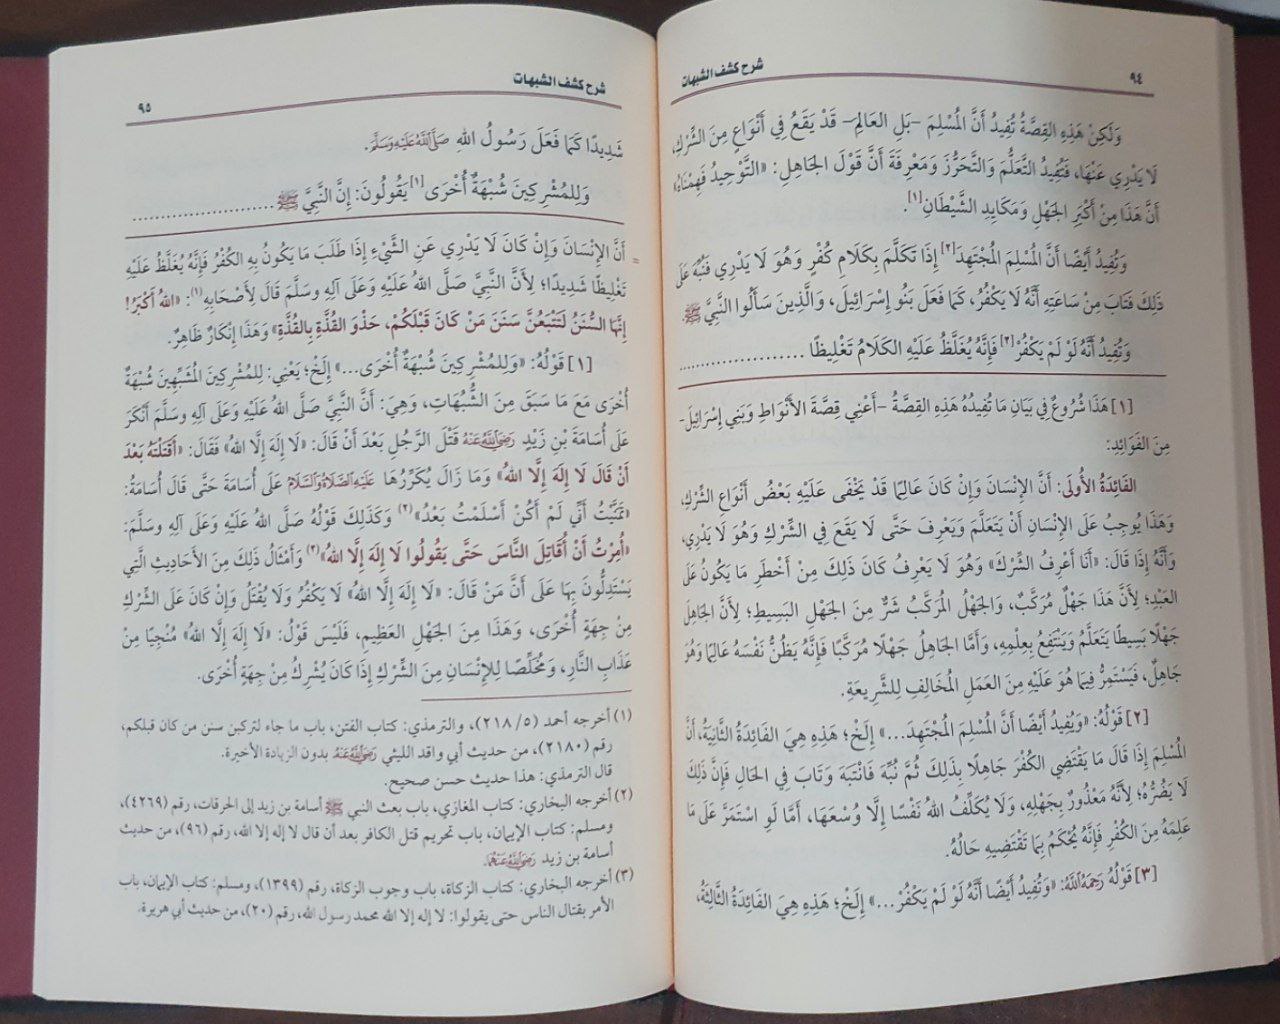 شرح كشف الشبهات
٩٤
وَلَكِنْ هَذِهِ القِصَّةُ تُفِيدُ أَنَّ المُسْلِمَ -بَلِ العَالِمِ- قَدْ يَقَعُ فِي أَنْوَاعٍ مِنَ الشِّرْكِ،
لَا يَدْرِي عَنْهَا، فَتُفِيدُ التَّعَلُّمَ وَالتَّحَرُّزَ وَمَعْرِفَةَ أَنَّ قَوْلَ الجَاهِلِ: «التَّوْحِيدُ فَهِمْنَاهُ»
أَنَّ هَذَا مِنْ أَكْبَرِ الجَهْلِ وَمَكَايِدِ الشَّيْطَانِ[١].
وَتُفِيدُ أَيْضًا أَنَّ المُسْلِمَ المُجْتَهِدَ[٢] إِذَا تَكَلَّمَ بِكَلَامِ كُفْرٍ وَهُوَ لَا يَدْرِي فَنُبِّهَ عَلَى
ذَلِكَ فَتَابَ مِنْ سَاعَتِهِ أَنَّهُ لَا يَكْفُرُ، كَمَا فَعَلَ بَنُو إِسْرَائِيلَ، وَالَّذِينَ سَأَلُوا النَّبِيَّ ﷺ
وَتُفِيدُ أَنَّهُ لَوْ لَمْ يَكْفُرْ[٣] فَإِنَّهُ يُغَلَّظُ عَلَيْهِ الكَلَامُ تَغْلِيظًا ....................
[١] هَذَا شُرُوعٌ فِي بَيَانِ مَا تُفِيدُهُ هَذِهِ القِصَّةُ -أَعْنِي قِصَّةَ الأَنْوَاطِ وَبَنِي إِسْرَائِيلَ-
مِنَ الفَوَائِدِ:
الفَائِدَةُ الأُولَى: أَنَّ الإِنْسَانَ وَإِنْ كَانَ عَالِمًا قَدْ يَخْفَى عَلَيْهِ بَعْضُ أَنْوَاعِ الشِّرْكِ،
وَهَذَا يُوجِبُ عَلَى الإِنْسَانِ أَنْ يَتَعَلَّمَ وَيَعْرِفَ حَتَّى لَا يَقَعَ فِي الشِّرْكِ وَهُوَ لَا يَدْرِي،
وَأَنَّهُ إِذَا قَالَ: «أَنَا أَعْرِفُ الشِّرْكَ» وَهُوَ لَا يَعْرِفُ كَانَ ذَلِكَ مِنْ أَخْطَرِ مَا يَكُونُ عَلَى
العَبْدِ؛ لِأَنَّ هَذَا جَهْلٌ مُرَكَّبٌ، وَالجَهْلُ المُرَكَّبُ شَرٌّ مِنَ الجَهْلِ البَسِيطِ؛ لِأَنَّ الجَاهِلَ
جَهْلًا بَسِيطًا يَتَعَلَّمُ وَيَنْتَفِعُ بِعِلْمِهِ، وَأَمَّا الجَاهِلُ جَهْلًا مُرَكَّبًا فَإِنَّهُ يَظُنُّ نَفْسَهُ عَالِمًا وَهُوَ
جَاهِلٌ، فَيَسْتَمِرُّ فِيمَا هُوَ عَلَيْهِ مِنَ العَمَلِ المُخَالِفِ لِلشَّرِيعَةِ.
[٢] قَوْلُهُ: «وَيُفِيدُ أَيْضًا أَنَّ المُسْلِمَ المُجْتَهِدَ...» إِلَخْ؛ هَذِهِ هِيَ الفَائِدَةُ الثَّانِيَةُ، أَنَّ
المُسْلِمَ إِذَا قَالَ مَا يَقْتَضِي الكُفْرَ جَاهِلًا بِذَلِكَ ثُمَّ نُبِّهَ فَانْتَبَهَ وَتَابَ فِي الحَالِ فَإِنَّ ذَلِكَ
لَا يَضُرُّهُ؛ لِأَنَّهُ مَعْذُورٌ بِجَهْلِهِ، وَلَا يُكَلِّفُ اللهُ نَفْسًا إِلَّا وُسْعَهَا، أَمَّا لَوِ اسْتَمَرَّ عَلَى مَا
عَلِمَهُ مِنَ الكُفْرِ فَإِنَّهُ يُحْكَمُ بِمَا تَقْتَضِيهِ حَالُهُ.
[٣] قَوْلُهُ رَحِمَهُ اللَّهُ: «وَتُفِيدُ أَيْضًا أَنَّهُ لَوْ لَمْ يَكْفُرْ...» إِلَخْ؛ هَذِهِ هِيَ الفَائِدَةُ الثَّالِثَةُ،
شرح كشف الشبهات
٩٥
شَدِيدًا كَمَا فَعَلَ رَسُولُ اللهِ صَلَّى اللَّهُ عَلَيْهِ وَسَلَّمَ.
وَلِلمُشْرِكِينَ شُبْهَةٌ أُخْرَى[١] يَقُولُونَ: إِنَّ النَّبِيَّ ﷺ ........................
= أَنَّ الإِنْسَانَ وَإِنْ كَانَ لَا يَدْرِي عَنِ الشَّيْءِ إِذَا طَلَبَ مَا يَكُونُ بِهِ الكُفْرُ فَإِنَّهُ يُغَلَّظُ عَلَيْهِ
تَغْلِيظًا شَدِيدًا؛ لِأَنَّ النَّبِيَّ صَلَّى اللهُ عَلَيْهِ وَعَلَى آلِهِ وَسَلَّمَ قَالَ لِأَصْحَابِهِ(١): «اللهُ أَكْبَرُ!
إِنَّهَا السُّنَنُ لَتَتَّبِعُنَّ سَنَنَ مَنْ كَانَ قَبْلَكُمْ، حَذْوَ القُذَّةِ بِالقُذَّةِ» وَهَذَا إِنْكَارٌ ظَاهِرٌ.
[١] قَوْلُهُ: «وَلِلمُشْرِكِينَ شُبْهَةٌ أُخْرَى...» إِلَخْ؛ يَعْنِي: لِلمُشْرِكِينَ المُشَبِّهِينَ شُبْهَةٌ
أُخْرَى مَعَ مَا سَبَقَ مِنَ الشُّبُهَاتِ، وَهِيَ: أَنَّ النَّبِيَّ صَلَّى اللهُ عَلَيْهِ وَعَلَى آلِهِ وَسَلَّمَ أَنْكَرَ
عَلَى أُسَامَةَ بْنِ زَيْدٍ رَضِيَ اللَّهُ عَنْهُ قَتْلَ الرَّجُلِ بَعْدَ أَنْ قَالَ: «لَا إِلَهَ إِلَّا اللهُ» فَقَالَ: «أَقَتَلْتَهُ بَعْدَ
أَنْ قَالَ لَا إِلَهَ إِلَّا اللهُ» وَمَا زَالَ يُكَرِّرُهَا عَلَيْهِ الصَّلَاةُ وَالسَّلَامُ عَلَى أُسَامَةَ حَتَّى قَالَ أُسَامَةُ:
«تَمَنَّيْتُ أَنِّي لَمْ أَكُنْ أَسْلَمْتُ بَعْدُ»(٢) وَكَذَلِكَ قَوْلُهُ صَلَّى اللهُ عَلَيْهِ وَعَلَى آلِهِ وَسَلَّمَ:
«أُمِرْتُ أَنْ أُقَاتِلَ النَّاسَ حَتَّى يَقُولُوا لَا إِلَهَ إِلَّا اللهُ»(٣) وَأَمْثَالُ ذَلِكَ مِنَ الأَحَادِيثِ الَّتِي
يَسْتَدِلُّونَ بِهَا عَلَى أَنَّ مَنْ قَالَ: «لَا إِلَهَ إِلَّا اللهُ» لَا يَكْفُرُ وَلَا يُقْتَلُ وَإِنْ كَانَ عَلَى الشِّرْكِ
مِنْ جِهَةٍ أُخْرَى، وَهَذَا مِنَ الجَهْلِ العَظِيمِ، فَلَيْسَ قَوْلُ: «لَا إِلَهَ إِلَّا اللهُ» مُنْجِيًا مِنْ
عَذَابِ النَّارِ، وَمُخَلِّصًا لِلإِنْسَانِ مِنَ الشِّرْكِ إِذَا كَانَ يُشْرِكُ مِنْ جِهَةٍ أُخْرَى.
(١) أخرجه أحمد (٢١٨/٥)، والترمذي: كتاب الفتن، باب ما جاء لتركبن سنن من كان قبلكم،
رقم (٢١٨٠)، من حديث أبي واقد الليثي رَضِيَ اللَّهُ عَنْهُ بدون الزيادة الأخيرة.
قال الترمذي: هذا حديث حسن صحيح.
(٢) أخرجه البخاري: كتاب المغازي، باب بعث النبي ﷺ أسامة بن زيد إلى الحرقات، رقم (٤٢٦٩)،
ومسلم: كتاب الإيمان، باب تحريم قتل الكافر بعد أن قال لا إله إلا الله، رقم (٩٦)، من حديث
أسامة بن زيد رَضِيَ اللَّهُ عَنْهُمَا.
(٣) أخرجه البخاري: كتاب الزكاة، باب وجوب الزكاة، رقم (١٣٩٩)، ومسلم: كتاب الإيمان، باب
الأمر بقتال الناس حتى يقولوا: لا إله إلا الله محمد رسول الله، رقم (٢٠)، من حديث أبي هريرة.